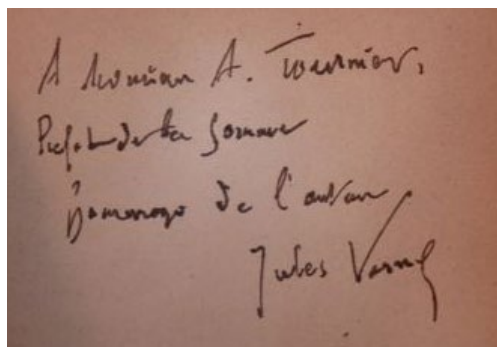 A Monsieur A. Tournier,
Préfet de la Somme
Hommage de l'auteur
Jules Verne